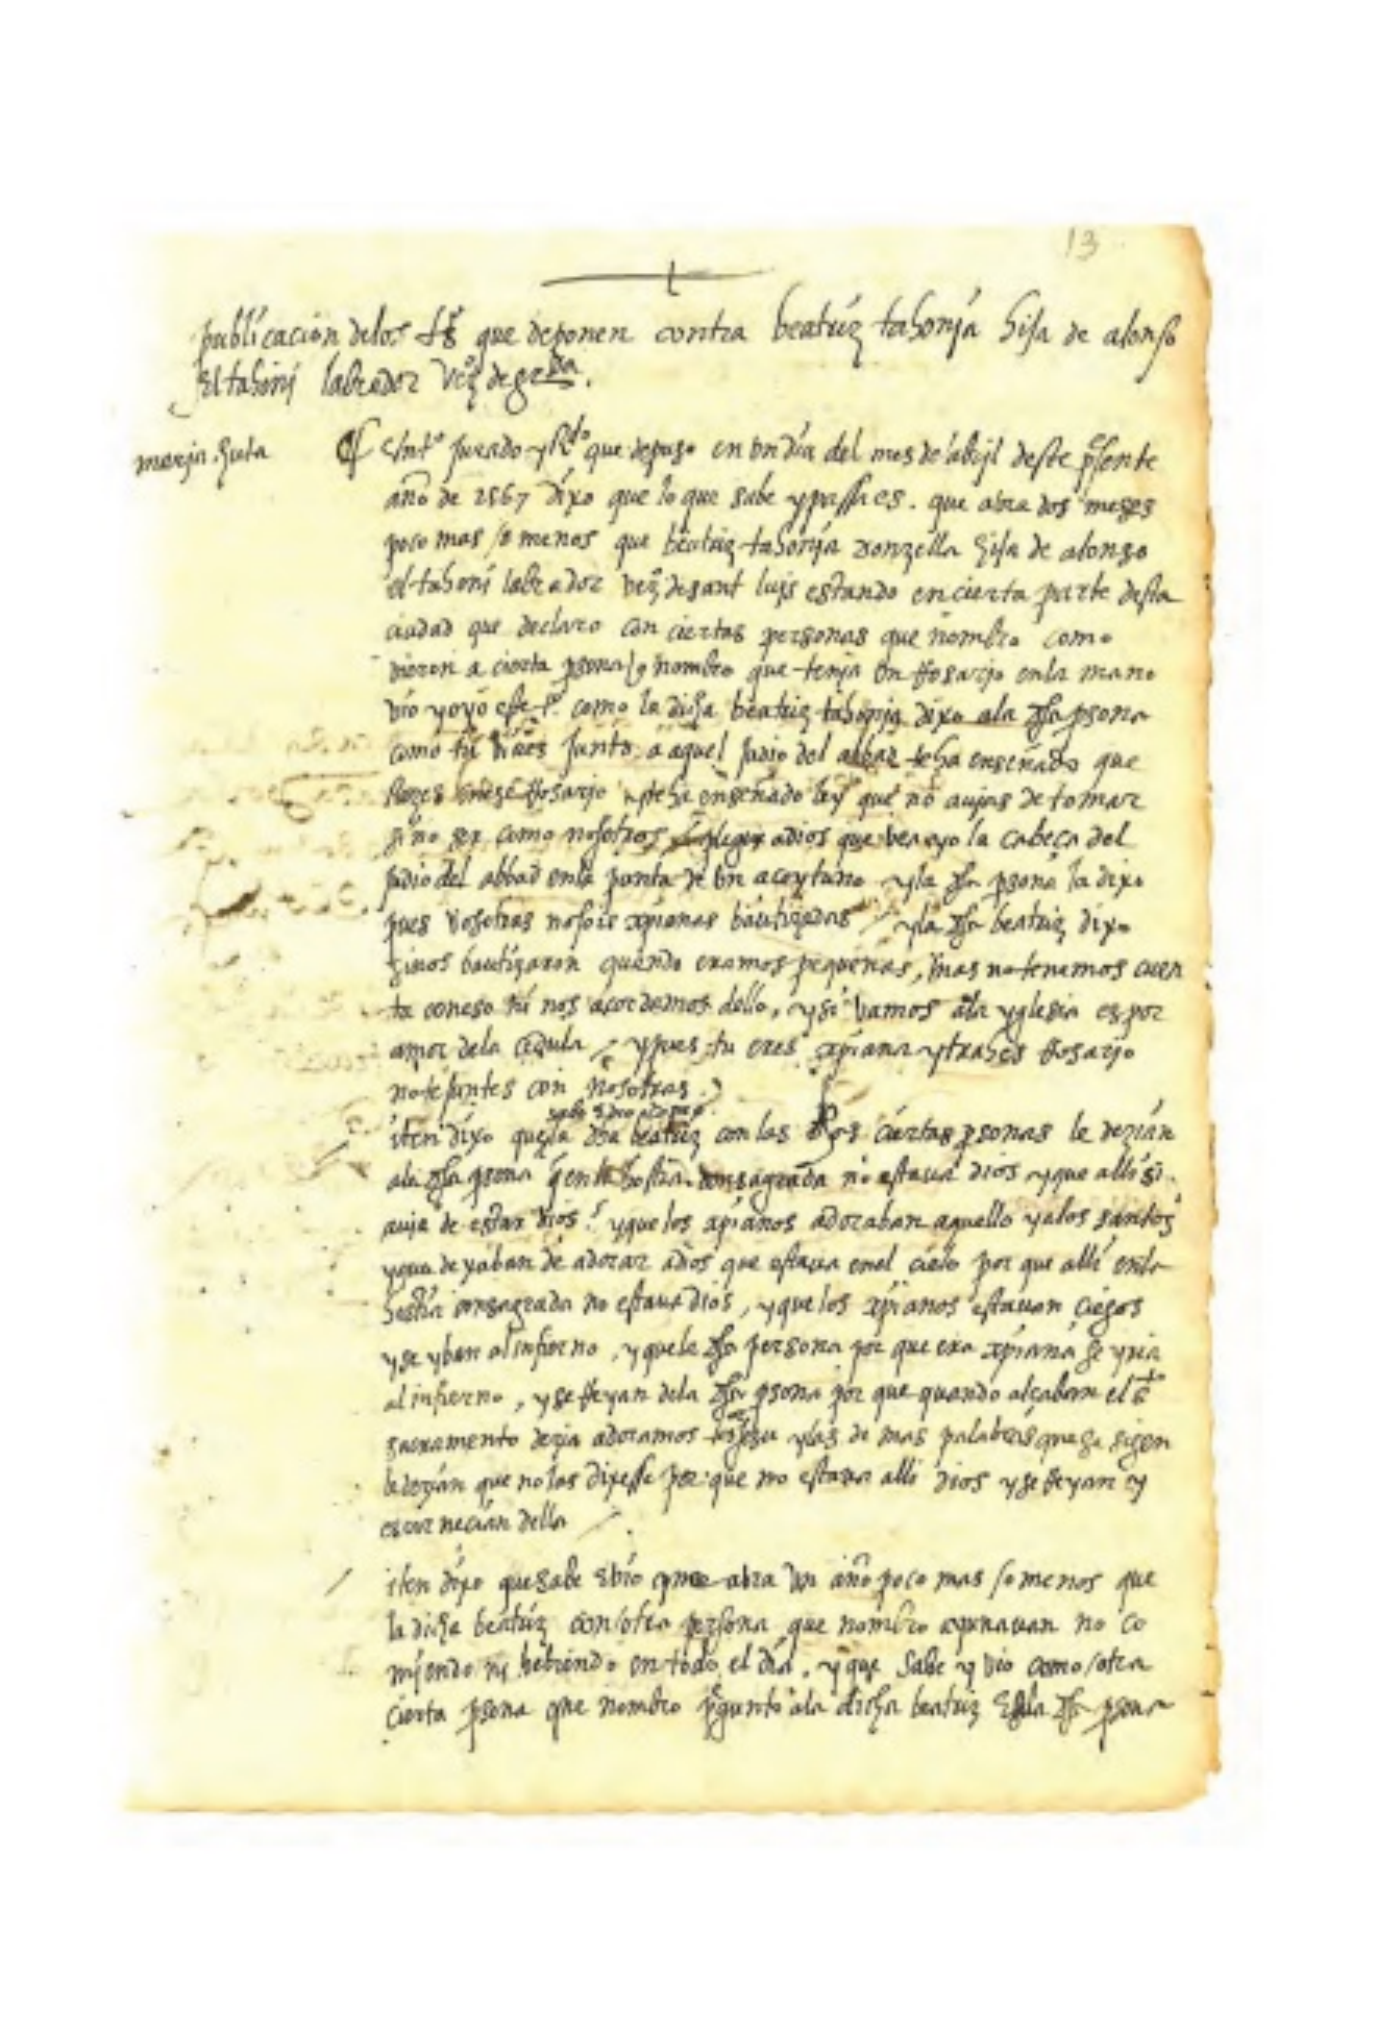 13
publicacion delos tsº que deponen contra beatriz tahonja hija de alonso
El tahoni labrador vezº de grda.
marja. guta
Unt.º Jurado y Rdo que depuso en un dia del mes de abril deste psente
año de 1567 dixo que lo que sabe y passa es. que abra dos meses
poco mas /o menos que beatriz tahonja donzella hija de alonso
el tahoni labrador vezº de sant luis estando en cierta parte desta
ciudad que declaro con ciertas personas que nombro como
vieron a cierta psona q nombro que tenja un Rosarjo en la mano
vio y oyo este tº. como la dicha beatriz tahonja dixo ala dha psona
como tu junto a aquel judio del abbad te ha enseñado que
Rezes Rosarjo y te ha enseñado ley que no aujas de tomar
sino ser como nosotros plega a dios que vea yo la cabeça del
judio del abbad en la punta de un azeytuno y la dha psona la dixo
pues vosotras no sois xpianas bautizadas / y la dha beatriz dixo
si nos bautizaron quando eramos pequeñas, mas no tenemos cuen
ta con eso ni nos acordamos dello, y si vamos ala yglesia es por
amor dela cedula / y pues tu eres xpiana y trahes Rosarjo
no te juntes con nosotras.
iten dixo que la dha beatriz con las dhas ciertas psonas le dezian
ala dha psona q en la hostia consagrada no estaua dios y que alli si
auja de estar dios? y que los xpianos adoraban aquello y alos santos
y que dexaban de adorar a dios que estaua en el cielo por que alli en la
hostia consagrada no estaua dios, y que los xpianos estauan ciegos
y se yban al infierno, y que la dha persona por que era xpiana se yria
al infierno, y se Reyan dela dha psona por que quando alçaban el sto
sacramento dezia adoramos y las de mas palabras que se siguen
le dezian que no las dixesse por que no estaua alli dios y se Reyan y
escarnecian della
iten dixo que sabe E vio que abra un año poco mas /o menos que
la dicha beatriz con /otra persona que nombro ayunauan no co
mjendo nj bebiendo en todo el dia. y que sabe y vio como /otra
cierta psona que nombro pgunto ala dicha beatriz E ala dha psona